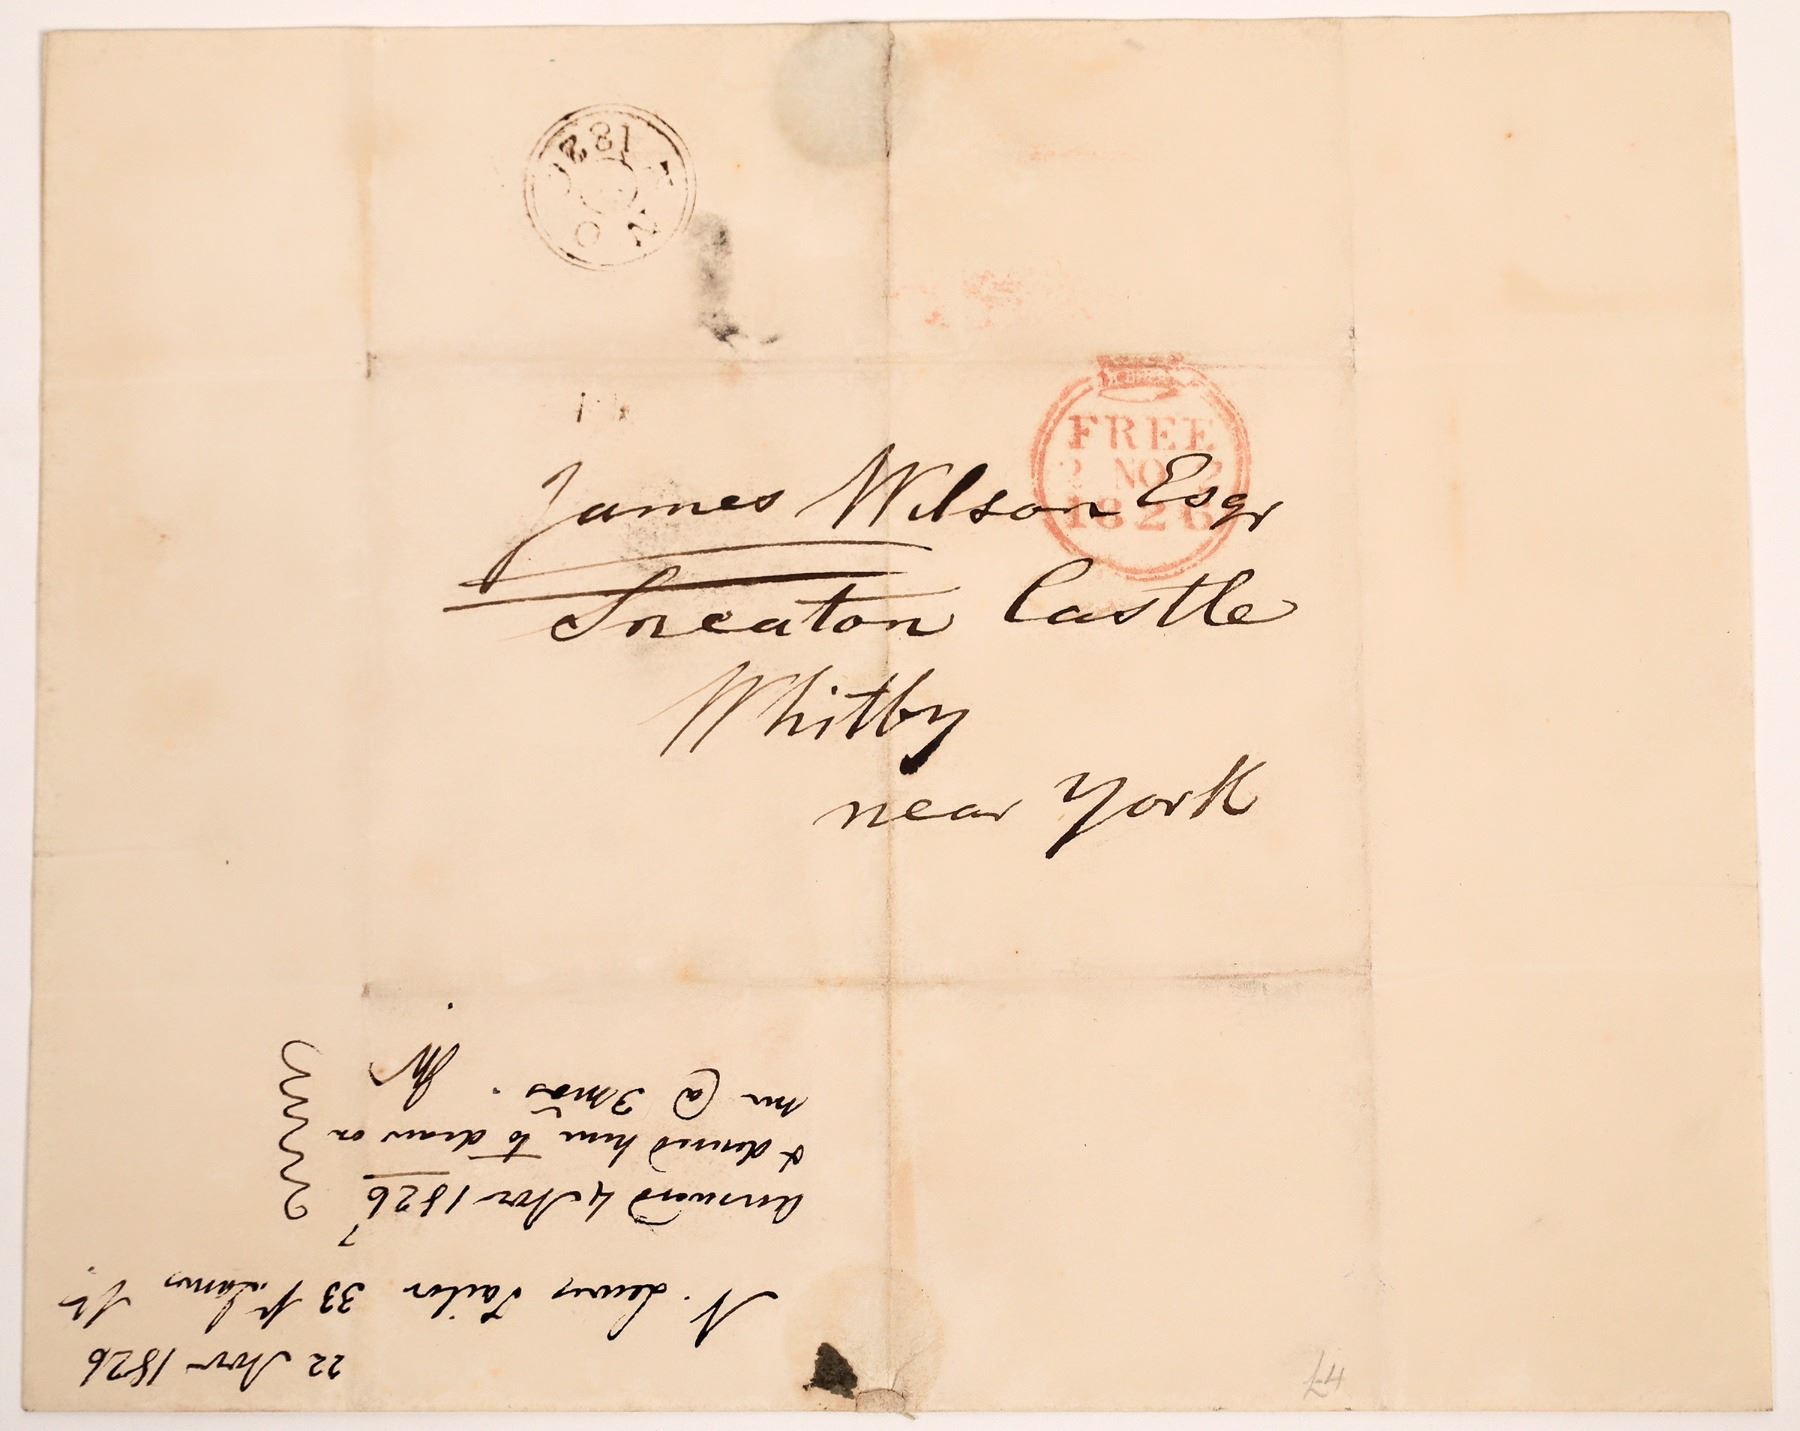 FREE
2 NO 2
1826
James Wilson Esqr
Sneaton Castle
Whitby
near York
22 Nov 1826
N. Lewis Tailor 33 St James St.
Answered 4 Nov 1826
& desired him to draw on
me @ 3 mos.
NO
182
£4